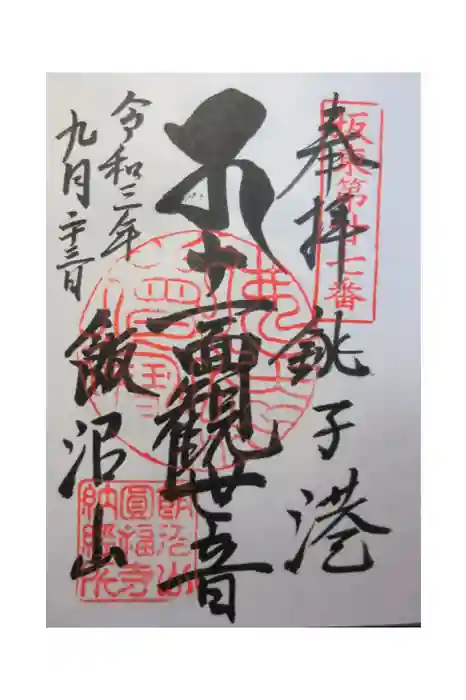 坂東第廿七番
奉拝
銚子港
十一面観世音
飯沼山
令和三年
九月二十三日
飯沼山
圓福寺
納経所